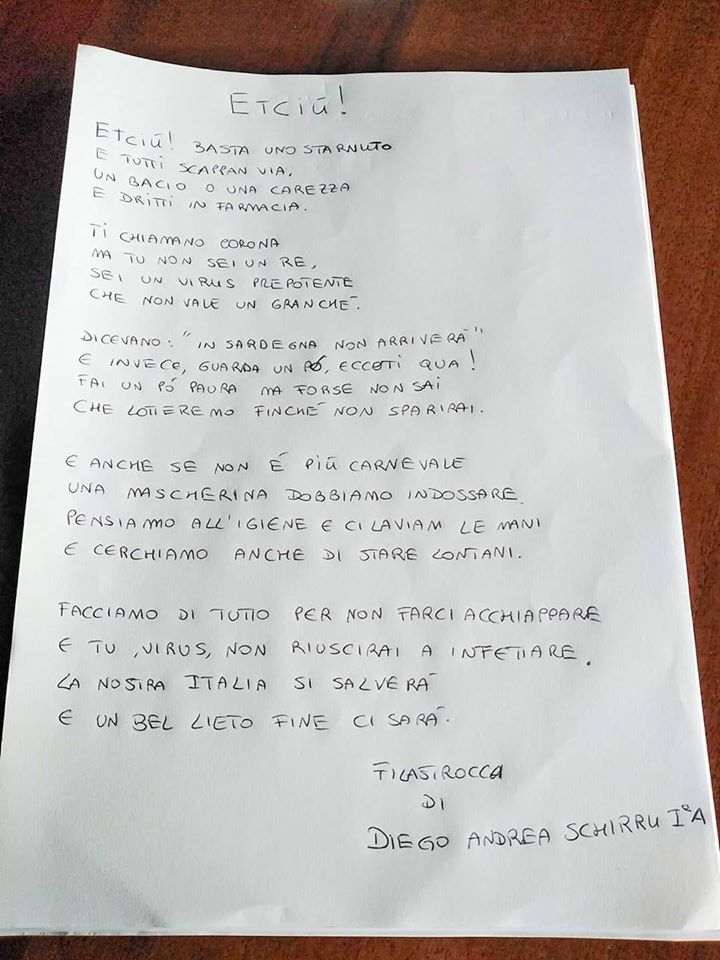 ETCIÚ!
ETCIÚ! BASTA UNO STARNUTO
E TUTTI SCAPPAN VIA,
UN BACIO O UNA CAREZZA
E DRITTI IN FARMACIA.
TI CHIAMANO CORONA
MA TU NON SEI UN RE,
SEI UN VIRUS PREPOTENTE
CHE NON VALE UN GRANCHÉ.
DICEVANO: "IN SARDEGNA NON ARRIVERÁ"
E INVECE, GUARDA UN PÓ, ECCOTI QUA!
FAI UN PÓ PAURA MA FORSE NON SAI
CHE LOTTEREMO FINCHÉ NON SPARIRAI.
E ANCHE SE NON É PIÚ CARNEVALE
UNA MASCHERINA DOBBIAMO INDOSSARE.
PENSIAMO ALL'IGIENE E CI LAVIAM LE MANI
E CERCHIAMO ANCHE DI STARE LONTANI.
FACCIAMO DI TUTTO PER NON FARCI ACCHIAPPARE
E TU, VIRUS, NON RIUSCIRAI A INFETTARE.
LA NOSTRA ITALIA SI SALVERÁ
E UN BEL LIETO FINE CI SARÁ.
FILASTROCCA
DI
DIEGO ANDREA SCHIRRU IªA